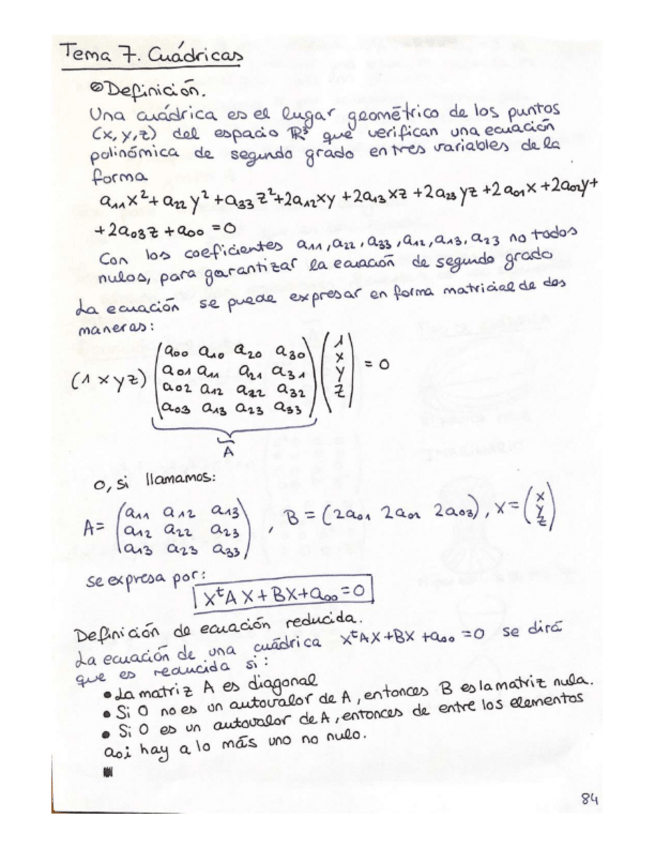 Tema 7. Cuádricas
Definición.
Una cuádrica es el lugar geométrico de los puntos
(x,y,z) del espacio ℝ³ que verifican una ecuación
polinómica de segundo grado en tres variables de la
forma
a₁₁x² + a₂₂y² + a₃₃z² + 2a₁₂xy + 2a₁₃xz + 2a₂₃yz + 2a₀₁x + 2a₀₂y +
+ 2a₀₃z + a₀₀ = 0
Con los coeficientes a₁₁, a₂₂, a₃₃, a₁₂, a₁₃, a₂₃ no todos
nulos, para garantizar la ecuación de segundo grado
La ecuación se puede expresar en forma matricial de dos
maneras:
a₀₀ a₁₀ a₂₀ a₃₀ 1
a₀₁ a₁₁ a₂₁ a₃₁ x
(1 x y z) = 0
a₀₂ a₁₂ a₂₂ a₃₂ y
a₀₃ a₁₃ a₂₃ a₃₃ z
Ã
O, si llamamos:
a₁₁ a₁₂ a₁₃ x
A = a₁₂ a₂₂ a₂₃ , B = (2a₀₁ 2a₀₂ 2a₀₃), X = y
a₁₃ a₂₃ a₃₃ z
se expresa por:
XᵗAX + BX + a₀₀ = 0
Definición de ecuación reducida.
La ecuación de una cuádrica XᵗAX + BX + a₀₀ = 0 se dirá
que es reducida si:
• La matriz A es diagonal
• Si 0 no es un autovalor de A, entonces B es la matriz nula.
• Si 0 es un autovalor de A, entonces de entre los elementos
a₀ᵢ hay a lo más uno no nulo.
84